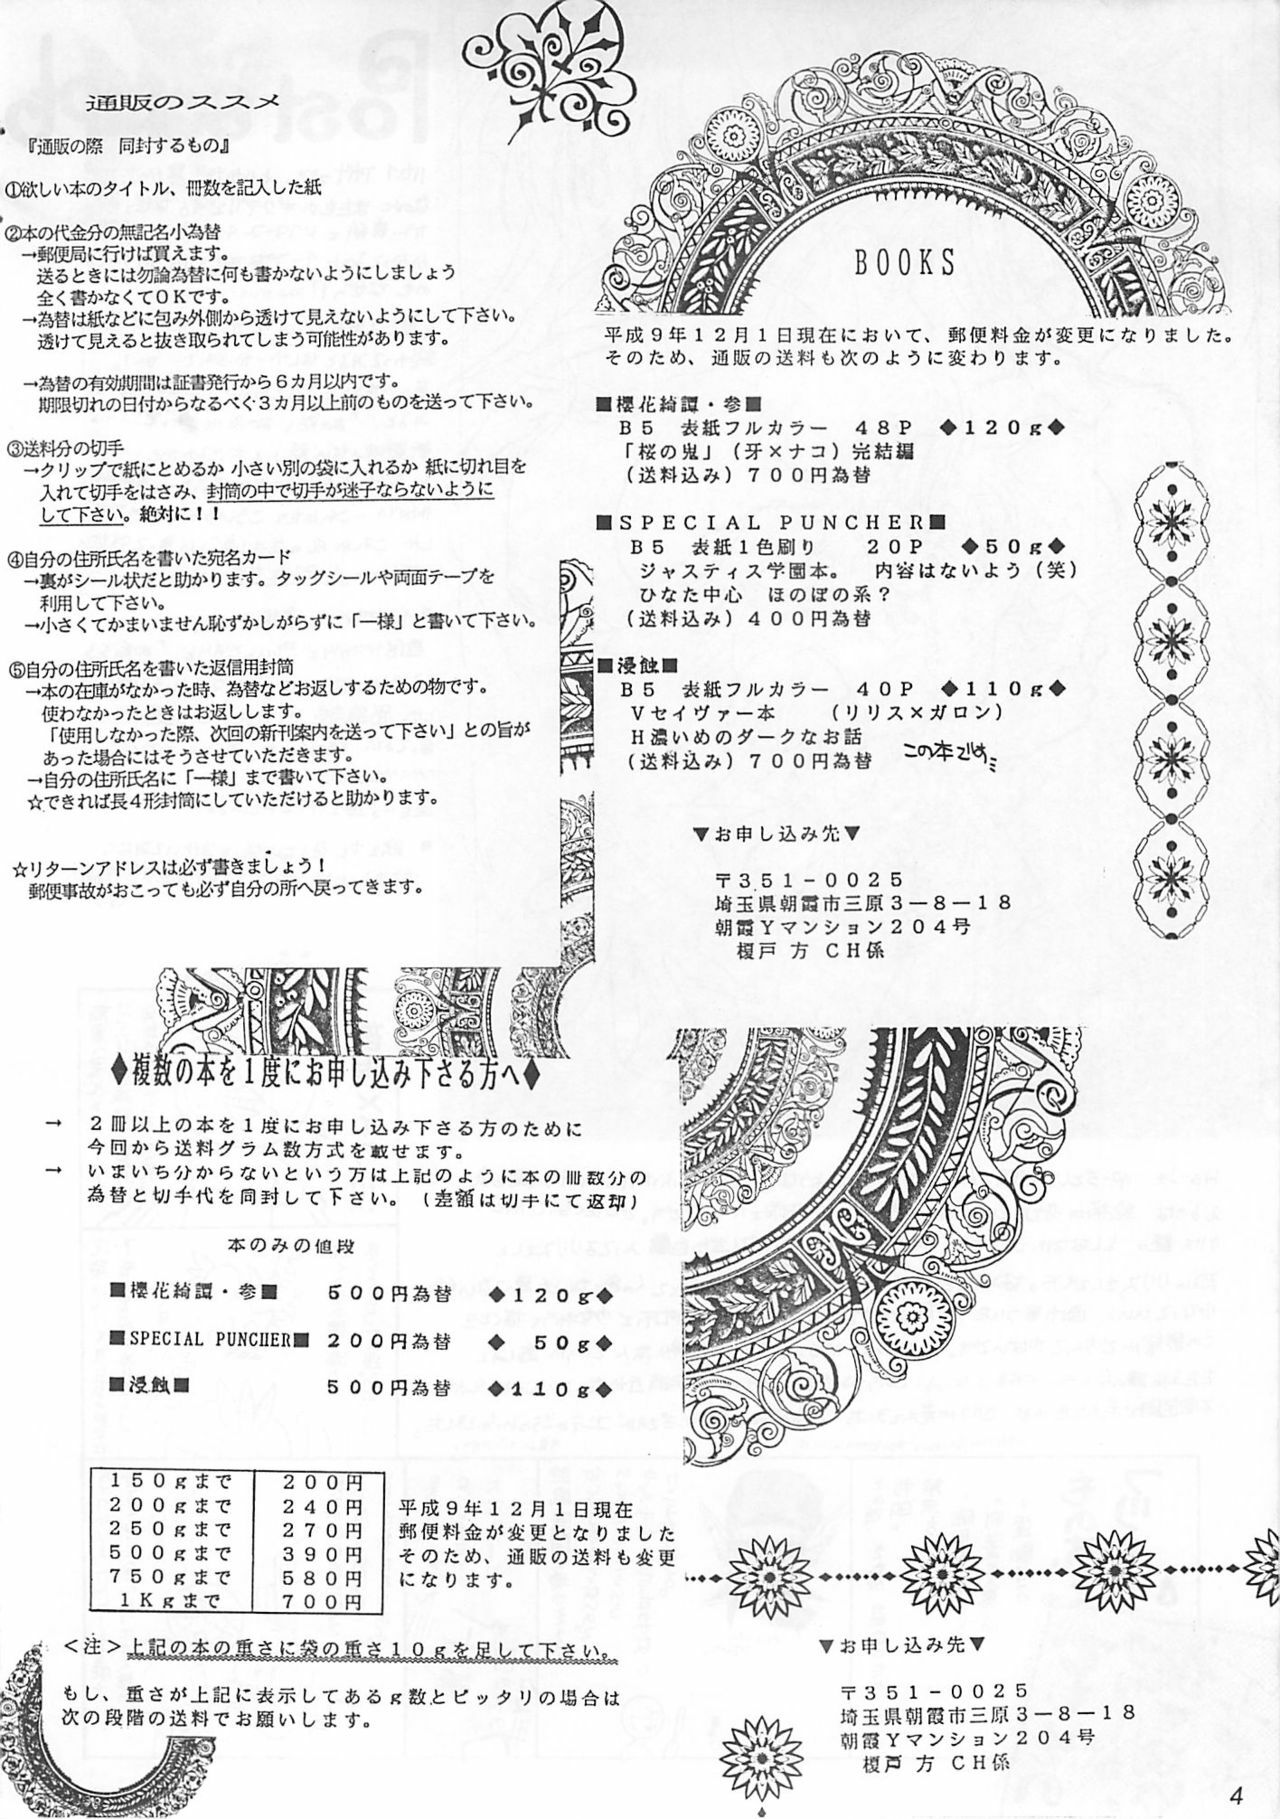 通販のススメ
『通販の際　同封するもの』
①欲しい本のタイトル、冊数を記入した紙
②本の代金分の無記名小為替
→郵便局に行けば買えます。
送るときには勿論為替に何も書かないようにしましょう
全く書かなくてＯＫです。
→為替は紙などに包み外側から透けて見えないようにして下さい。
透けて見えると抜き取られてしまう可能性があります。
→為替の有効期間は証書発行から６カ月以内です。
期限切れの日付からなるべく３カ月以上前のものを送って下さい。
③送料分の切手
→クリップで紙にとめるか 小さい別の袋に入れるか 紙に切れ目を
入れて切手をはさみ、封筒の中で切手が迷子ならないように
して下さい。絶対に！！
④自分の住所氏名を書いた宛名カード
→裏がシール状だと助かります。タッグシールや両面テープを
利用して下さい。
→小さくてかまいません恥ずかしがらずに「一様」と書いて下さい。
⑤自分の住所氏名を書いた返信用封筒
→本の在庫がなかった時、為替などお返しするための物です。
使わなかったときはお返しします。
「使用しなかった際、次回の新刊案内を送って下さい」との旨が
あった場合にはそうさせていただきます。
→自分の住所氏名に「一様」まで書いて下さい。
☆できれば長４形封筒にしていただけると助かります。
☆リターンアドレスは必ず書きましょう！
郵便事故がおこっても必ず自分の所へ戻ってきます。
BOOKS
平成９年１２月１日現在において、郵便料金が変更になりました。
そのため、通販の送料も次のように変わります。
■櫻花綺譚・参■
Ｂ５　表紙フルカラー　４８Ｐ　◆１２０ｇ◆
「桜の鬼」（牙×ナコ）完結編
（送料込み）７００円為替
■ＳＰＥＣＩＡＬ　ＰＵＮＣＨＥＲ■
Ｂ５　表紙１色刷り　２０Ｐ　◆５０ｇ◆
ジャスティス学園本。　内容はないよう（笑）
ひなた中心　ほのぼの系？
（送料込み）４００円為替
■浸蝕■
Ｂ５　表紙フルカラー　４０Ｐ　◆１１０ｇ◆
Ｖセイヴァー本　（リリス×ガロン）
Ｈ濃いめのダークなお話
（送料込み）７００円為替
▼お申し込み先▼
〒３５１－００２５
埼玉県朝霞市三原３－８－１８
朝霞Ｙマンション２０４号
榎戸 方 ＣＨ係
◆複数の本を１度にお申し込み下さる方へ◆
→　２冊以上の本を１度にお申し込み下さる方のために
今回から送料グラム数方式を載せます。
→　いまいち分からないという万は上記のように本の冊数分の
為替と切手代を同封して下さい。（差額は切手にて返却）
本のみの値段
■櫻花綺譚・参■　５００円為替　◆１２０ｇ◆
■SPECIAL PUNCHER■　２００円為替　◆　５０ｇ◆
■浸蝕■　５００円為替　◆１１０ｇ◆
１５０ｇまで　２００円
２００ｇまで　２４０円
２５０ｇまで　２７０円
５００ｇまで　３９０円
７５０ｇまで　５８０円
１Ｋｇまで　７００円
平成９年１２月１日現在
郵便料金が変更となりました
そのため、通販の送料も変更
になります。
＜注＞上記の本の重さに袋の重さ１０ｇを足して下さい。
もし、重さが上記に表示してあるｇ数とピッタリの場合は
次の段階の送料でお願いします。
▼お申し込み先▼
〒３５１－００２５
埼玉県朝霞市三原３－８－１８
朝霞Ｙマンション２０４号
榎戸 方 ＣＨ係
4